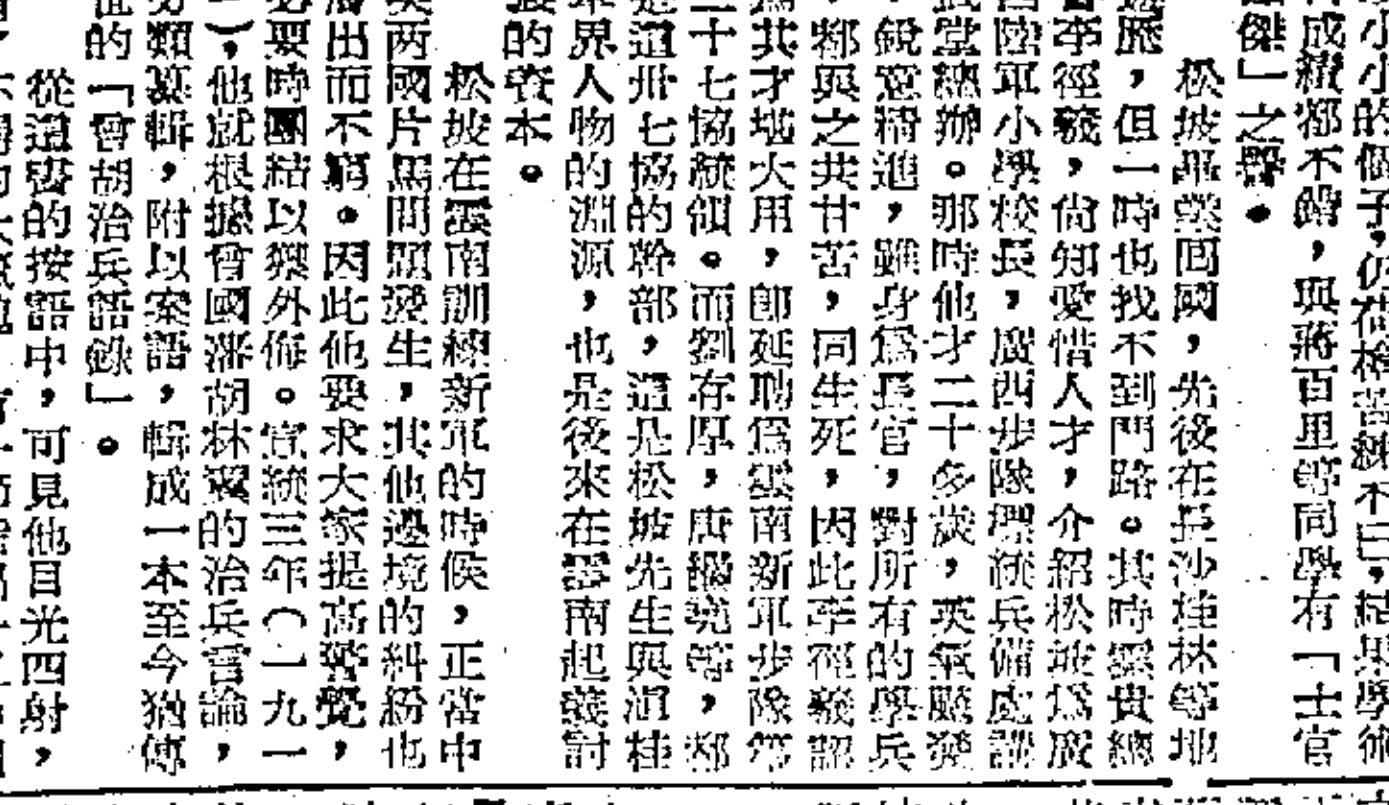 小小的個子，仍
成績都不錯，與蔣百里等同學有「士官
傑」之譽。
松坡畢業囘國，先後在長沙桂林等地
，但一時也找不到門路。其時雲貴總
李徑羲，尙知愛惜人才，介紹松坡爲廣
陸軍小學校長，廣西步隊標統兵備處
堂總辦。那時他才二十多歲，英氣颯發
銳意精進，雖身爲長官，對所有的學兵
，都與之共甘苦，同生死，因此李徑羲認
爲其才堪大用，卽延聘爲雲南新軍步隊第
二十七協統領。而劉存厚，唐繼堯等，都
是這卅七協的幹部，這是松坡先生與滇桂
軍界人物的淵源，也是後來在雲南起義討
的資本。
松坡在雲南訓練新軍的時候，正當中
英两國片馬問題發生，其他邊境的糾紛也
出而不窮。因此他要求大家提高警覺，
必要時團結以禦外侮。宣統三年（一九一
一），他就根據曾國藩胡林翼的治兵言論，
分類纂輯，附以案語，輯成一本至今猶傳
世的「曾胡治兵語錄」。
從這書的按語中，可見他目光四射，